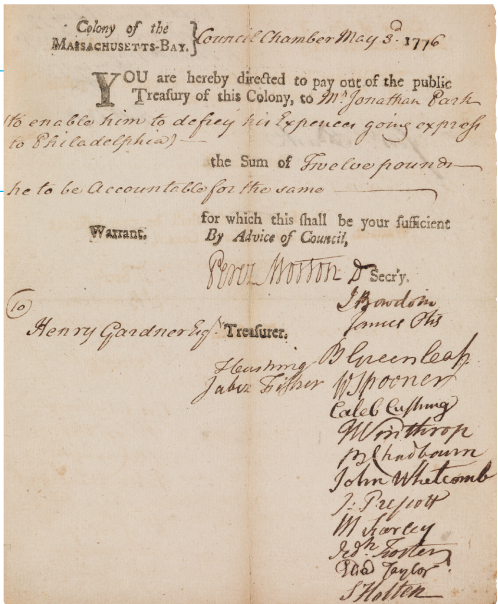 Colony of the
MASSACHUSETTS-BAY.
Council Chamber May 3.d 1776
YOU are hereby directed to pay out of the public
Treasury of this Colony, to Mr. Jonathan Park
(to enable him to defrey his Expences going express
to Philadelphia) —
the Sum of Twelve pounds
he to be Accountable for the same —
for which this shall be your sufficient
Warrant.
By Advice of Council,
Perez Morton D Secr'y.
To
Henry Gardner Esqr. Treasurer.
J Bowdoin
James Otis
B Greenleaf
T Cushing
W Spooner
Jabez Fisher
Caleb Cushing
J Winthrop
B Chadbourn
John Whetcomb
J: Prescott
M Farley
Jedh Foster
Eldad Taylor
S Holten